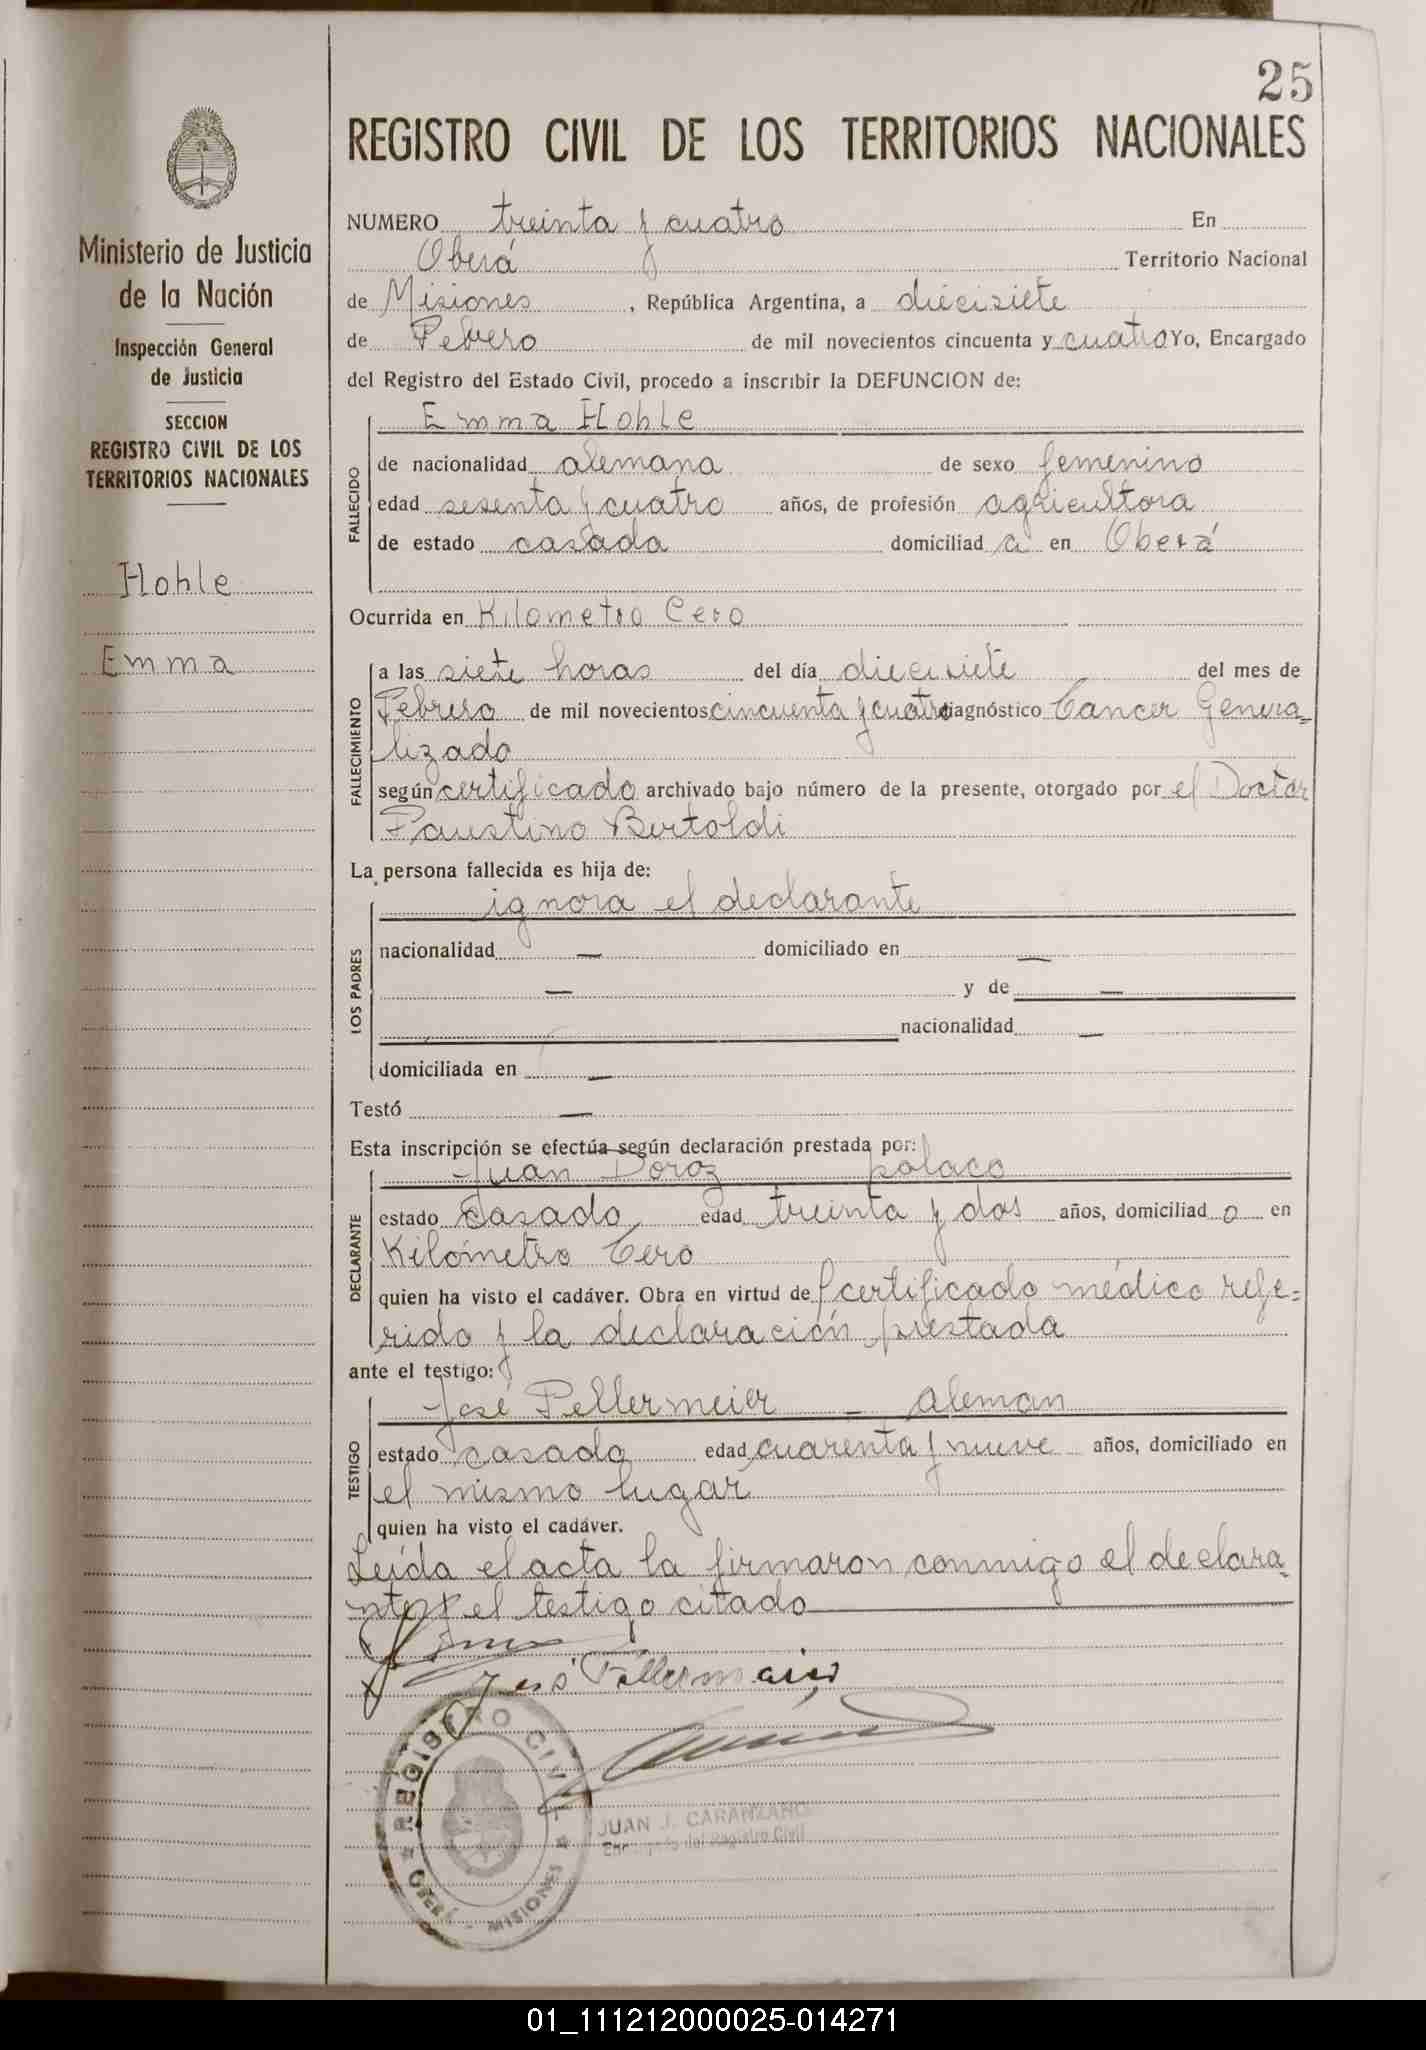 25
REGISTRO CIVIL DE LOS TERRITORIOS NACIONALES
Ministerio de Justicia
de la Nación
Inspección General
de Justicia
SECCION
REGISTRO CIVIL DE LOS
TERRITORIOS NACIONALES
Hohle
Emma
NUMERO treinta y cuatro En
Oberá Territorio Nacional
de Misiones, República Argentina, a diecisiete
de Febrero de mil novecientos cincuenta y cuatro Yo, Encargado
del Registro del Estado Civil, procedo a inscribir la DEFUNCION de:
FALLECIDO
Emma Hohle
de nacionalidad alemana de sexo femenino
edad sesenta y cuatro años, de profesión agricultora
de estado casada domiciliad a en Oberá
Ocurrida en Kilometro Cero
FALLECIMIENTO
a las siete horas del día diecisiete del mes de
Febrero de mil novecientos cincuenta y cuatro diagnóstico Cancer Genera=
lizado
según certificado archivado bajo número de la presente, otorgado por el Doctor
Faustino Bertoldi
La persona fallecida es hija de:
LOS PADRES
ignora el declarante
nacionalidad — domiciliado en —
— y de —
nacionalidad —
domiciliada en —
Testó —
Esta inscripción se efectúa según declaración prestada por:
DECLARANTE
Juan Doroz polaco
estado casado edad treinta y dos años, domiciliad o en
Kilómetro Cero
quien ha visto el cadáver. Obra en virtud de certificado médico refe=
rido y la declaración prestada
ante el testigo:
TESTIGO
José Fellermeier — aleman
estado casado edad cuarenta y nueve años, domiciliado en
el mismo lugar
quien ha visto el cadáver.
Leída el acta la firmaron conmigo el declara=
nte y el testigo citado
José Fellermeier
REGISTRO CIVIL
OBERÁ - MISIONES
JUAN J. CARANZANO
Encargado del Registro Civil
01_111212000025-014271